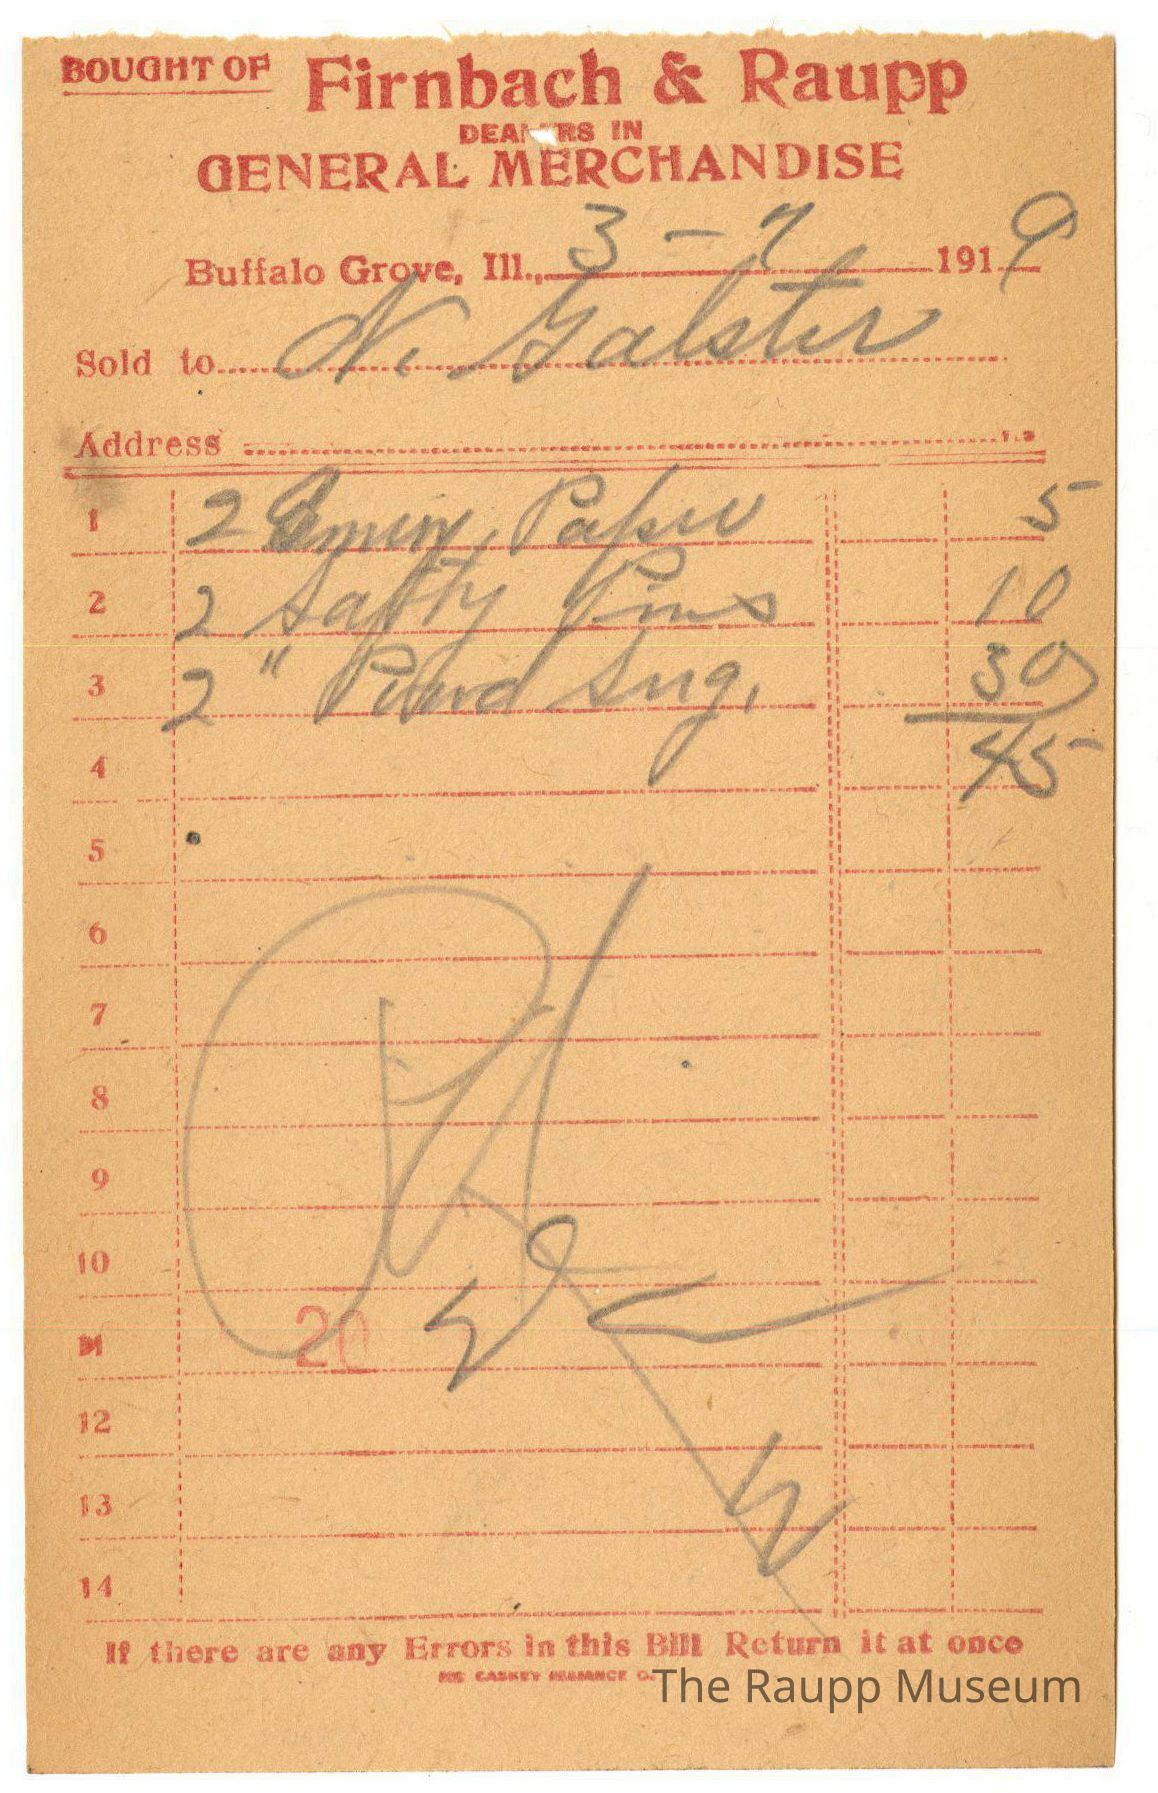 BOUGHT OF Firnbach & Raupp
DEALERS IN
GENERAL MERCHANDISE
Buffalo Grove, Ill., 3 - 7 1919
Sold to N. Galster
Address
1 2 Emery Paper 5
2 2 Safty Pins 10
3 2 " Powd Sug. 30
4 45
5
6
7
8
9
10
11 20
12
13
14
If there are any Errors in this Bill Return it at once
The Raupp Museum